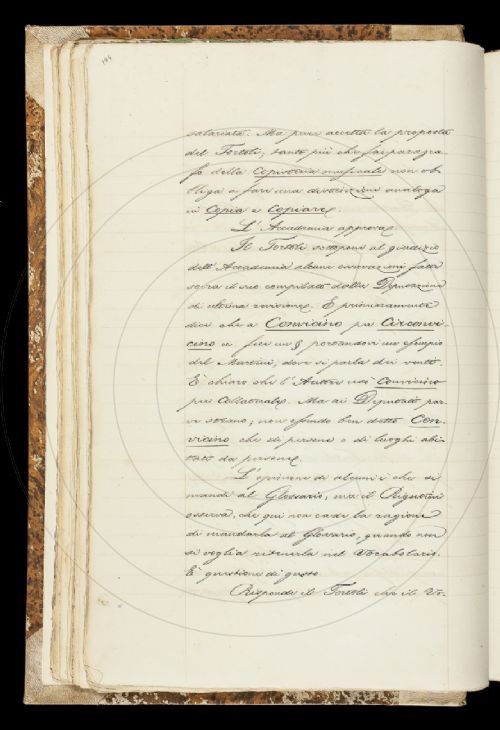 salariato. Ma pure accetta la proposta
del Tortoli, tanto più che far paragra-
fo della Copisteria musicale non ob-
bliga a fare una distinzione analoga
in Copia e Copiare.
L'Accademia approva.
Il Tortoli sottopone al giudizio
dell'Accademia alcune osservazioni fatte
sopra il suo compilato dalla Deputazione
di ultima revisione. E primieramente
dice che a Convicino per Circonvi-
cino si fece un § portandovi un esempio
del Martini, dove si parla dei venti.
È chiaro che l'Autore usò Convicino
per Collaterale. Ma ai Deputati par-
ve strano, non essendo ben detto Con-
vicino che di persone o di luoghi abi-
tati da persone.
L'opinione di alcuni è che si
mandi al Glossario, ma il Rigutini
osserva, che qui non cade la ragione
di mandarla al Glossario, quando non
si voglia ritenerla nel Vocabolario.
È questione di gusto.
Risponde il Tortoli che il Vo-